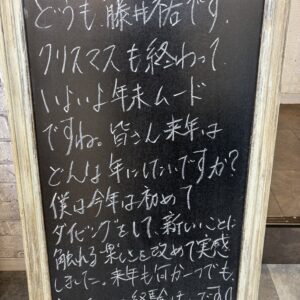 どうも、藤井祐です。
クリスマスも終わって
いよいよ年末ムード
ですね。皆さん来年は
どんな年にしたいですか?
僕は今年は初めて
ダイビングをして、新しいことに
触れる楽しさを改めて実感
しました。来年も何か一つでも、
経験